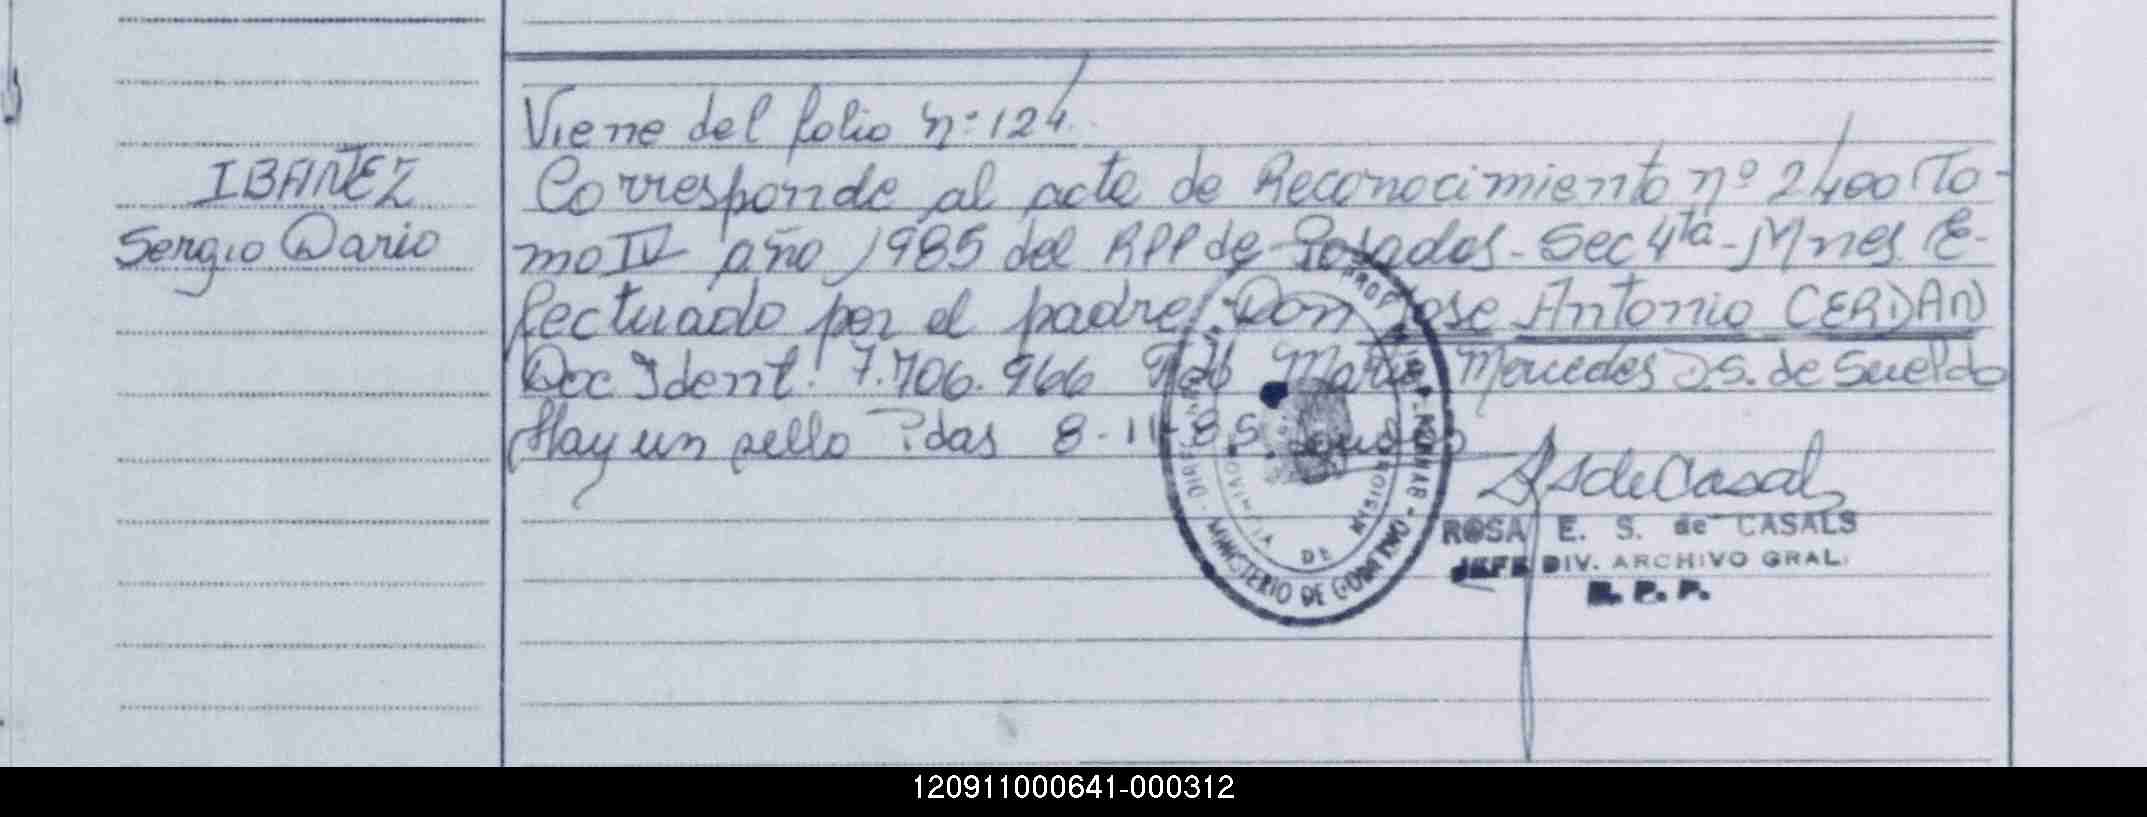 Viene del folio n: 124.
IBAÑEZ
Sergio Dario
Corresponde al acta de Reconocimiento nº 2400 To-
mo IV año 1985 del RPP de Posadas - Sec 4ta - Mnes. E-
fectuado por el padre Don Jose Antonio CERDAN
Doc Ident. 7.706.966 Mercedes S. de Sueldo
Hay un sello Pdas 8-11-85
ROSA E. S. de CASALS
JEFE DIV. ARCHIVO GRAL.
R. P. P.
MINISTERIO DE GOBIERNO
PROVINCIA DE MISIONES
120911000641-000312